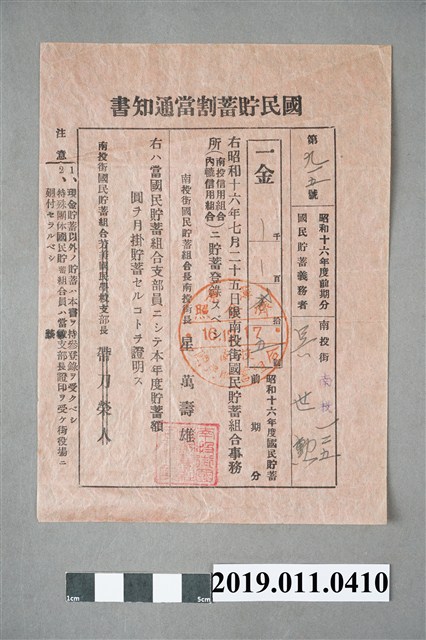 國民貯蓄割當通知書
第九一五號
昭和十六年度前期分
國民貯蓄義務者
南投街
南投
吳世
一金
千
百
拾
五
昭和十六年度國民貯蓄
前期分
右昭和十六年七月二十五日限南投街國民貯蓄組合事務
所(南投信用組合
內轆信用組合)ニ貯蓄登錄スベシ
南投街國民貯蓄組合長南投街長 星萬壽雄
右ハ當國民貯蓄組合支部員ニシテ本年度貯蓄額
圓ヲ月掛貯蓄セルコトヲ證明ス
支部長 帶刀榮人
注意
1、現金貯蓄以外ノ貯蓄ハ本書ヲ持參登錄ヲ受クベシ
2、特殊團体國民貯蓄組合員ハ當該支部長證印ヲ受ケ街役場ニ
納付セラルベシ
16
7
1cm
5cm
2019.011.0410